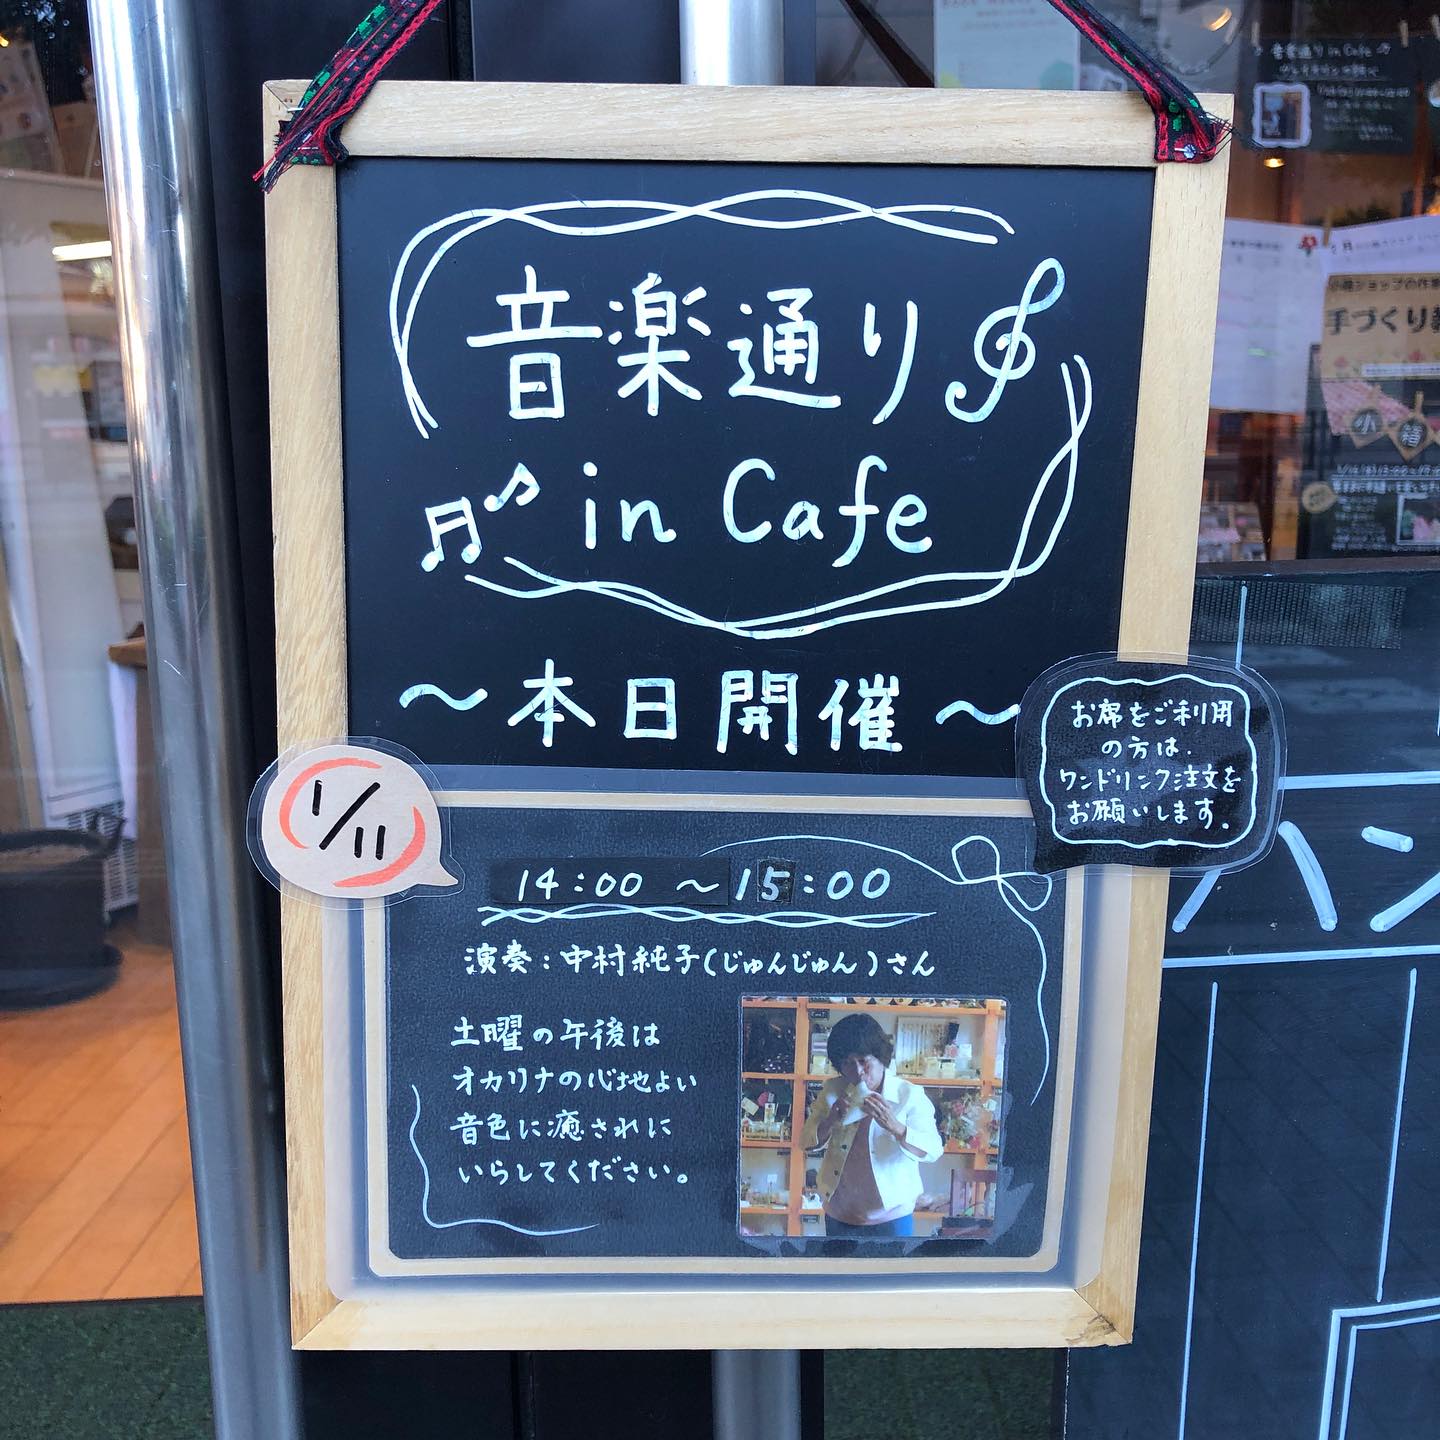 音楽通り
in Cafe
～本日開催～
お席をご利用
の方は、
ワンドリンク注文を
お願いします。
1/11
14:00 ～15:00
演奏:中村純子(じゅんじゅん)さん
土曜の午後は
オカリナの心地よい
音色に癒されに
いらしてください。
音楽通り in Cafe
小箱ショップの作家
手づくり
小箱
ハン